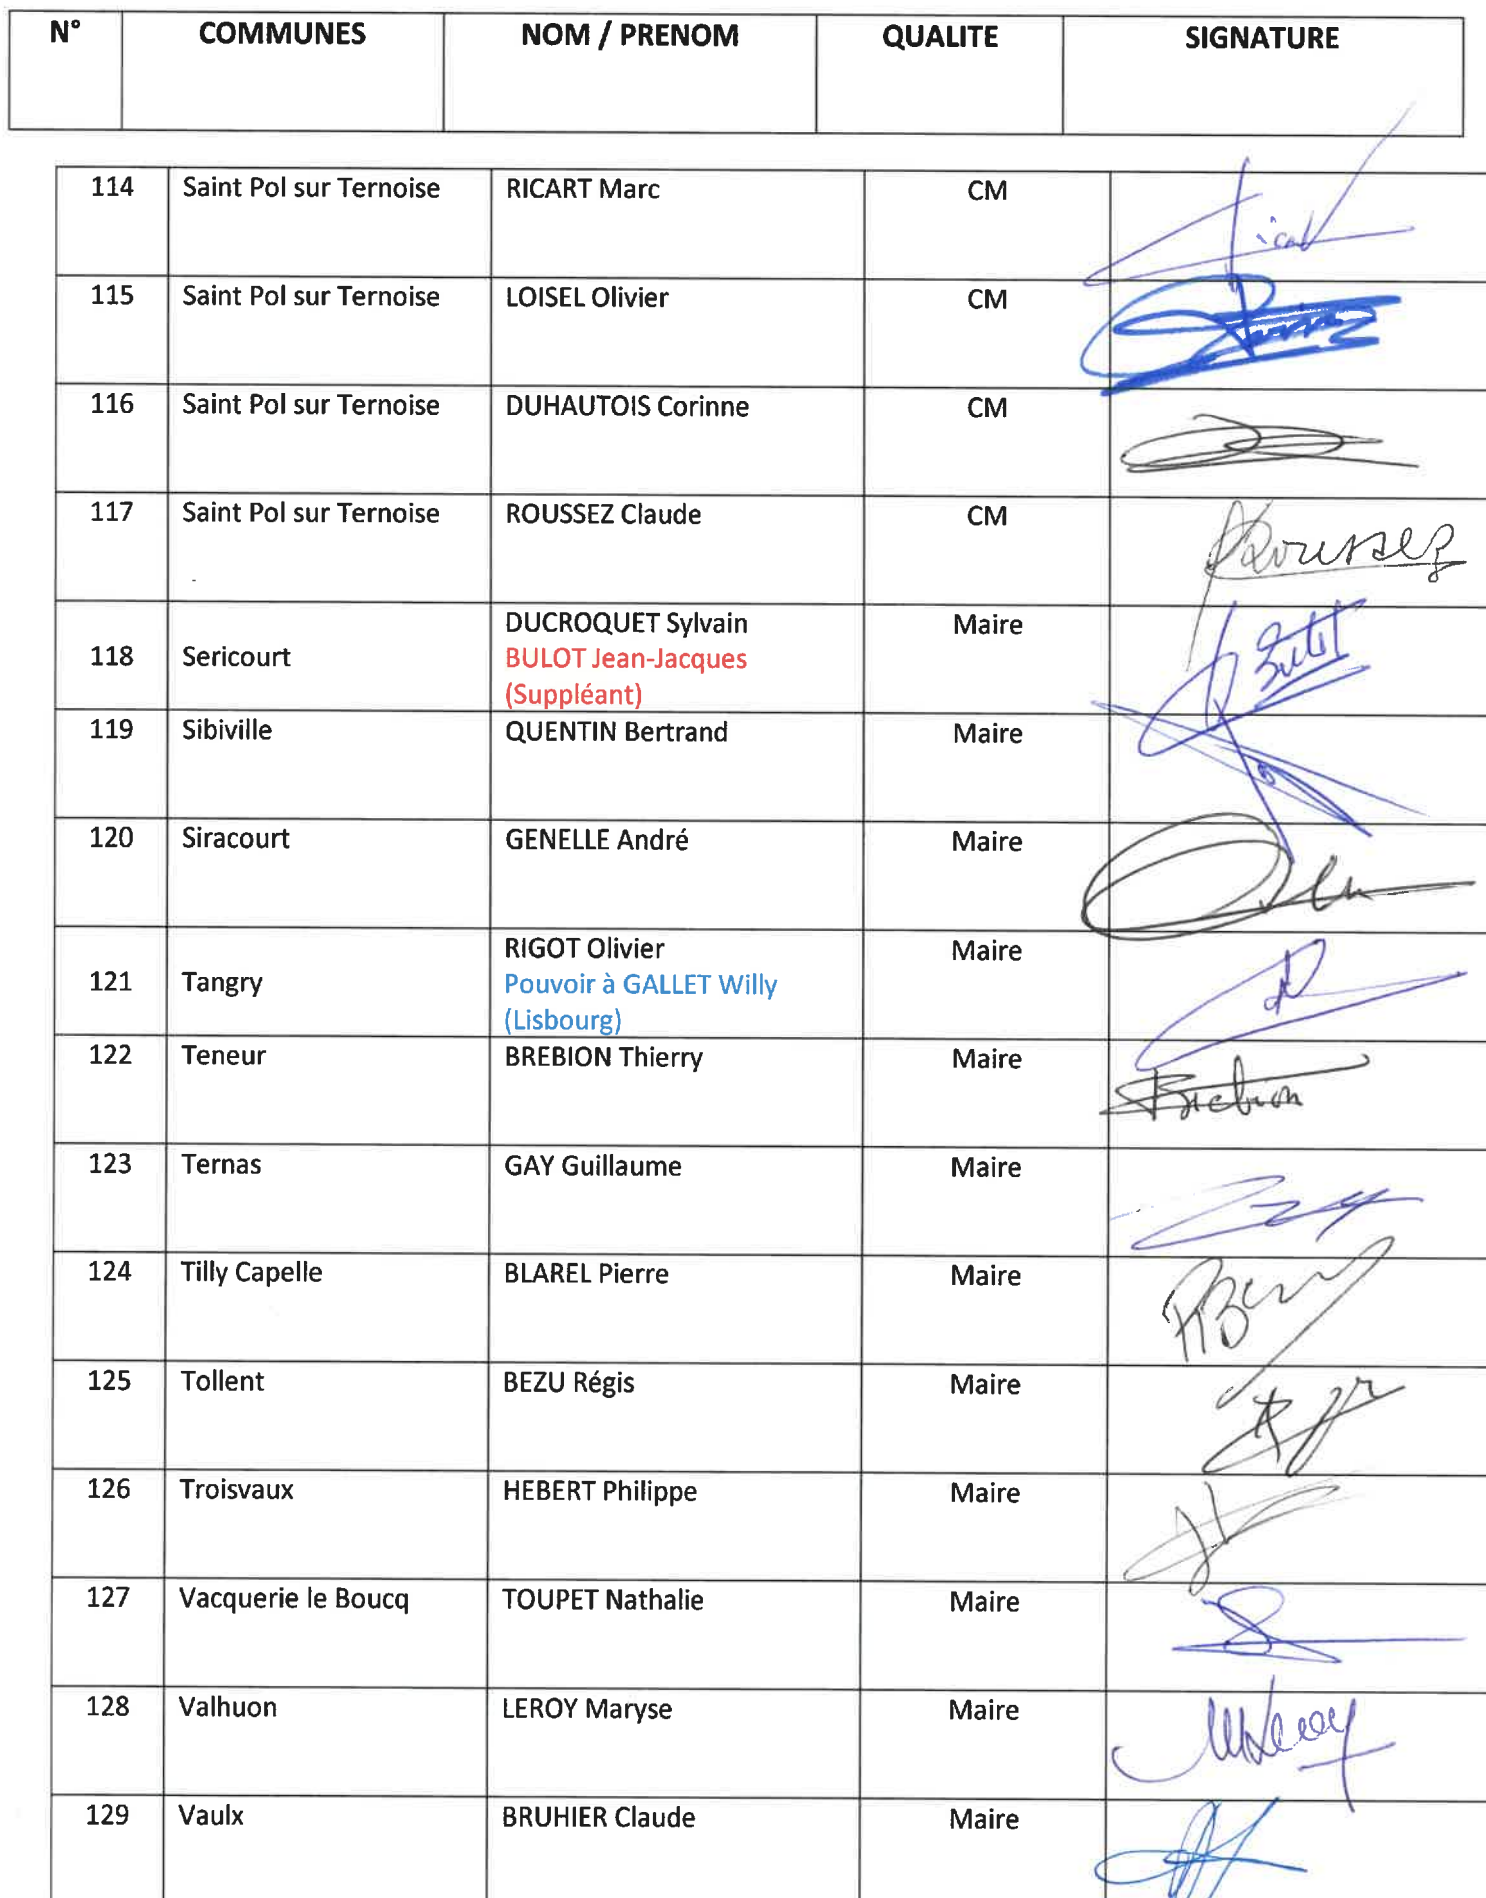 N° COMMUNES NOM / PRENOM QUALITE SIGNATURE
114 Saint Pol sur Ternoise RICART Marc CM
115 Saint Pol sur Ternoise LOISEL Olivier CM
116 Saint Pol sur Ternoise DUHAUTOIS Corinne CM
117 Saint Pol sur Ternoise ROUSSEZ Claude CM Roussez
DUCROQUET Sylvain Maire Bulot
118 Sericourt BULOT Jean-Jacques
(Suppléant)
119 Sibiville QUENTIN Bertrand Maire
120 Siracourt GENELLE André Maire
RIGOT Olivier Maire
121 Tangry Pouvoir à GALLET Willy
(Lisbourg)
122 Teneur BREBION Thierry Maire Brebion
123 Ternas GAY Guillaume Maire
124 Tilly Capelle BLAREL Pierre Maire
125 Tollent BEZU Régis Maire
126 Troisvaux HEBERT Philippe Maire
127 Vacquerie le Boucq TOUPET Nathalie Maire
128 Valhuon LEROY Maryse Maire MLeroy
129 Vaulx BRUHIER Claude Maire